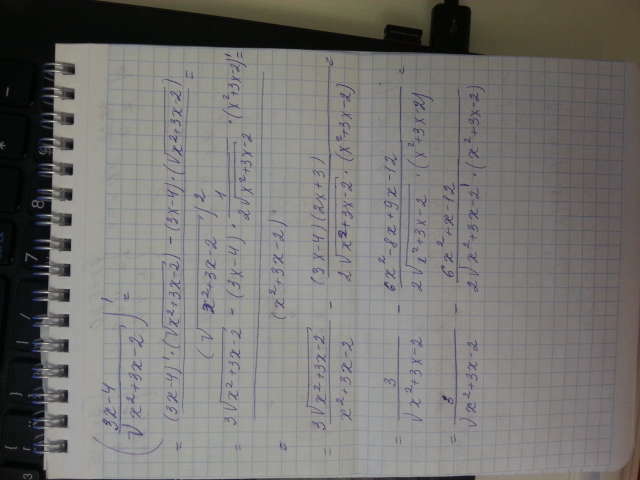 (3x-4 / √x²+3x-2)' =
= (3x-4)'·(√x²+3x-2) - (3x-4)·(√x²+3x-2)' / (√x²+3x-2)² =
= 3√x²+3x-2 - (3x-4)· 1 / 2√x²+3x-2 ·(x²+3x-2)' / (x²+3x-2) =
= 3√x²+3x-2 / x²+3x-2 - (3x-4)(2x+3) / 2√x²+3x-2 · (x²+3x-2) =
= 3 / √x²+3x-2 - 6x²-8x+9x-12 / 2√x²+3x-2 · (x²+3x-2) =
= 3 / √x²+3x-2 - 6x²+x-12 / 2√x²+3x-2 · (x²+3x-2)